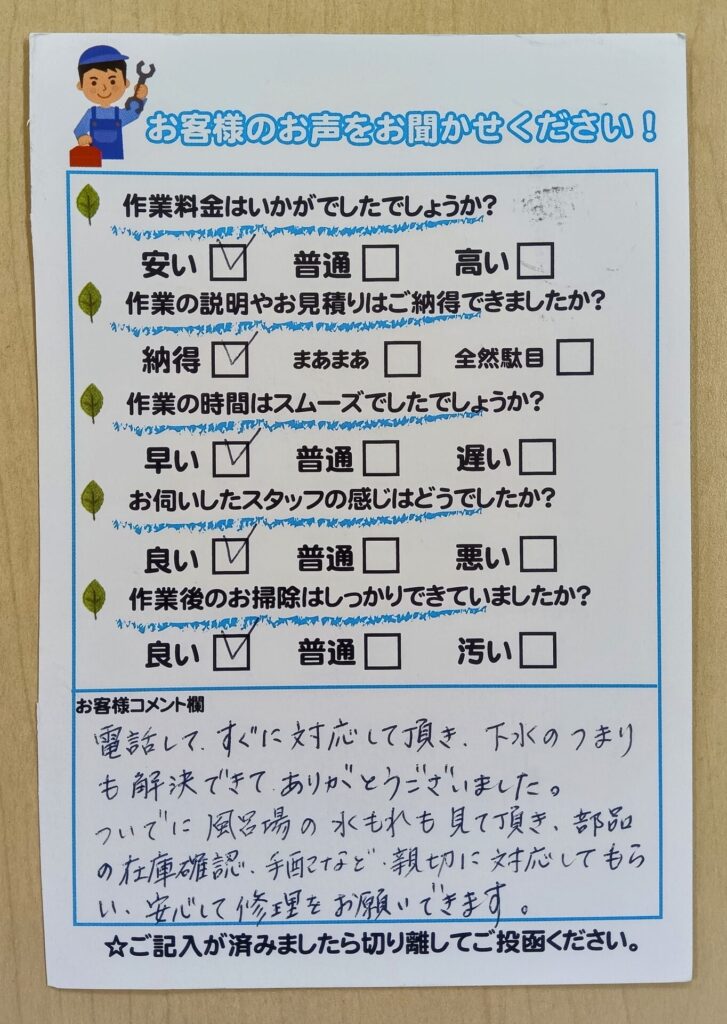 お客様のお声をお聞かせください！
作業料金はいかがでしたでしょうか?
安い ☑ 普通 □ 高い □
作業の説明やお見積りはご納得できましたか?
納得 ☑ まあまあ □ 全然駄目 □
作業の時間はスムーズでしたでしょうか?
早い ☑ 普通 □ 遅い □
お伺いしたスタッフの感じはどうでしたか?
良い ☑ 普通 □ 悪い □
作業後のお掃除はしっかりできていましたか?
良い ☑ 普通 □ 汚い □
お客様コメント欄
電話して、すぐに対応して頂き、下水のつまり
も解決できて、ありがとうございました。
ついでに風呂場の水もれも見て頂き、部品
の在庫確認、手配など、親切に対応してもら
い、安心して修理をお願いできます。
☆ご記入が済みましたら切り離してご投函ください。